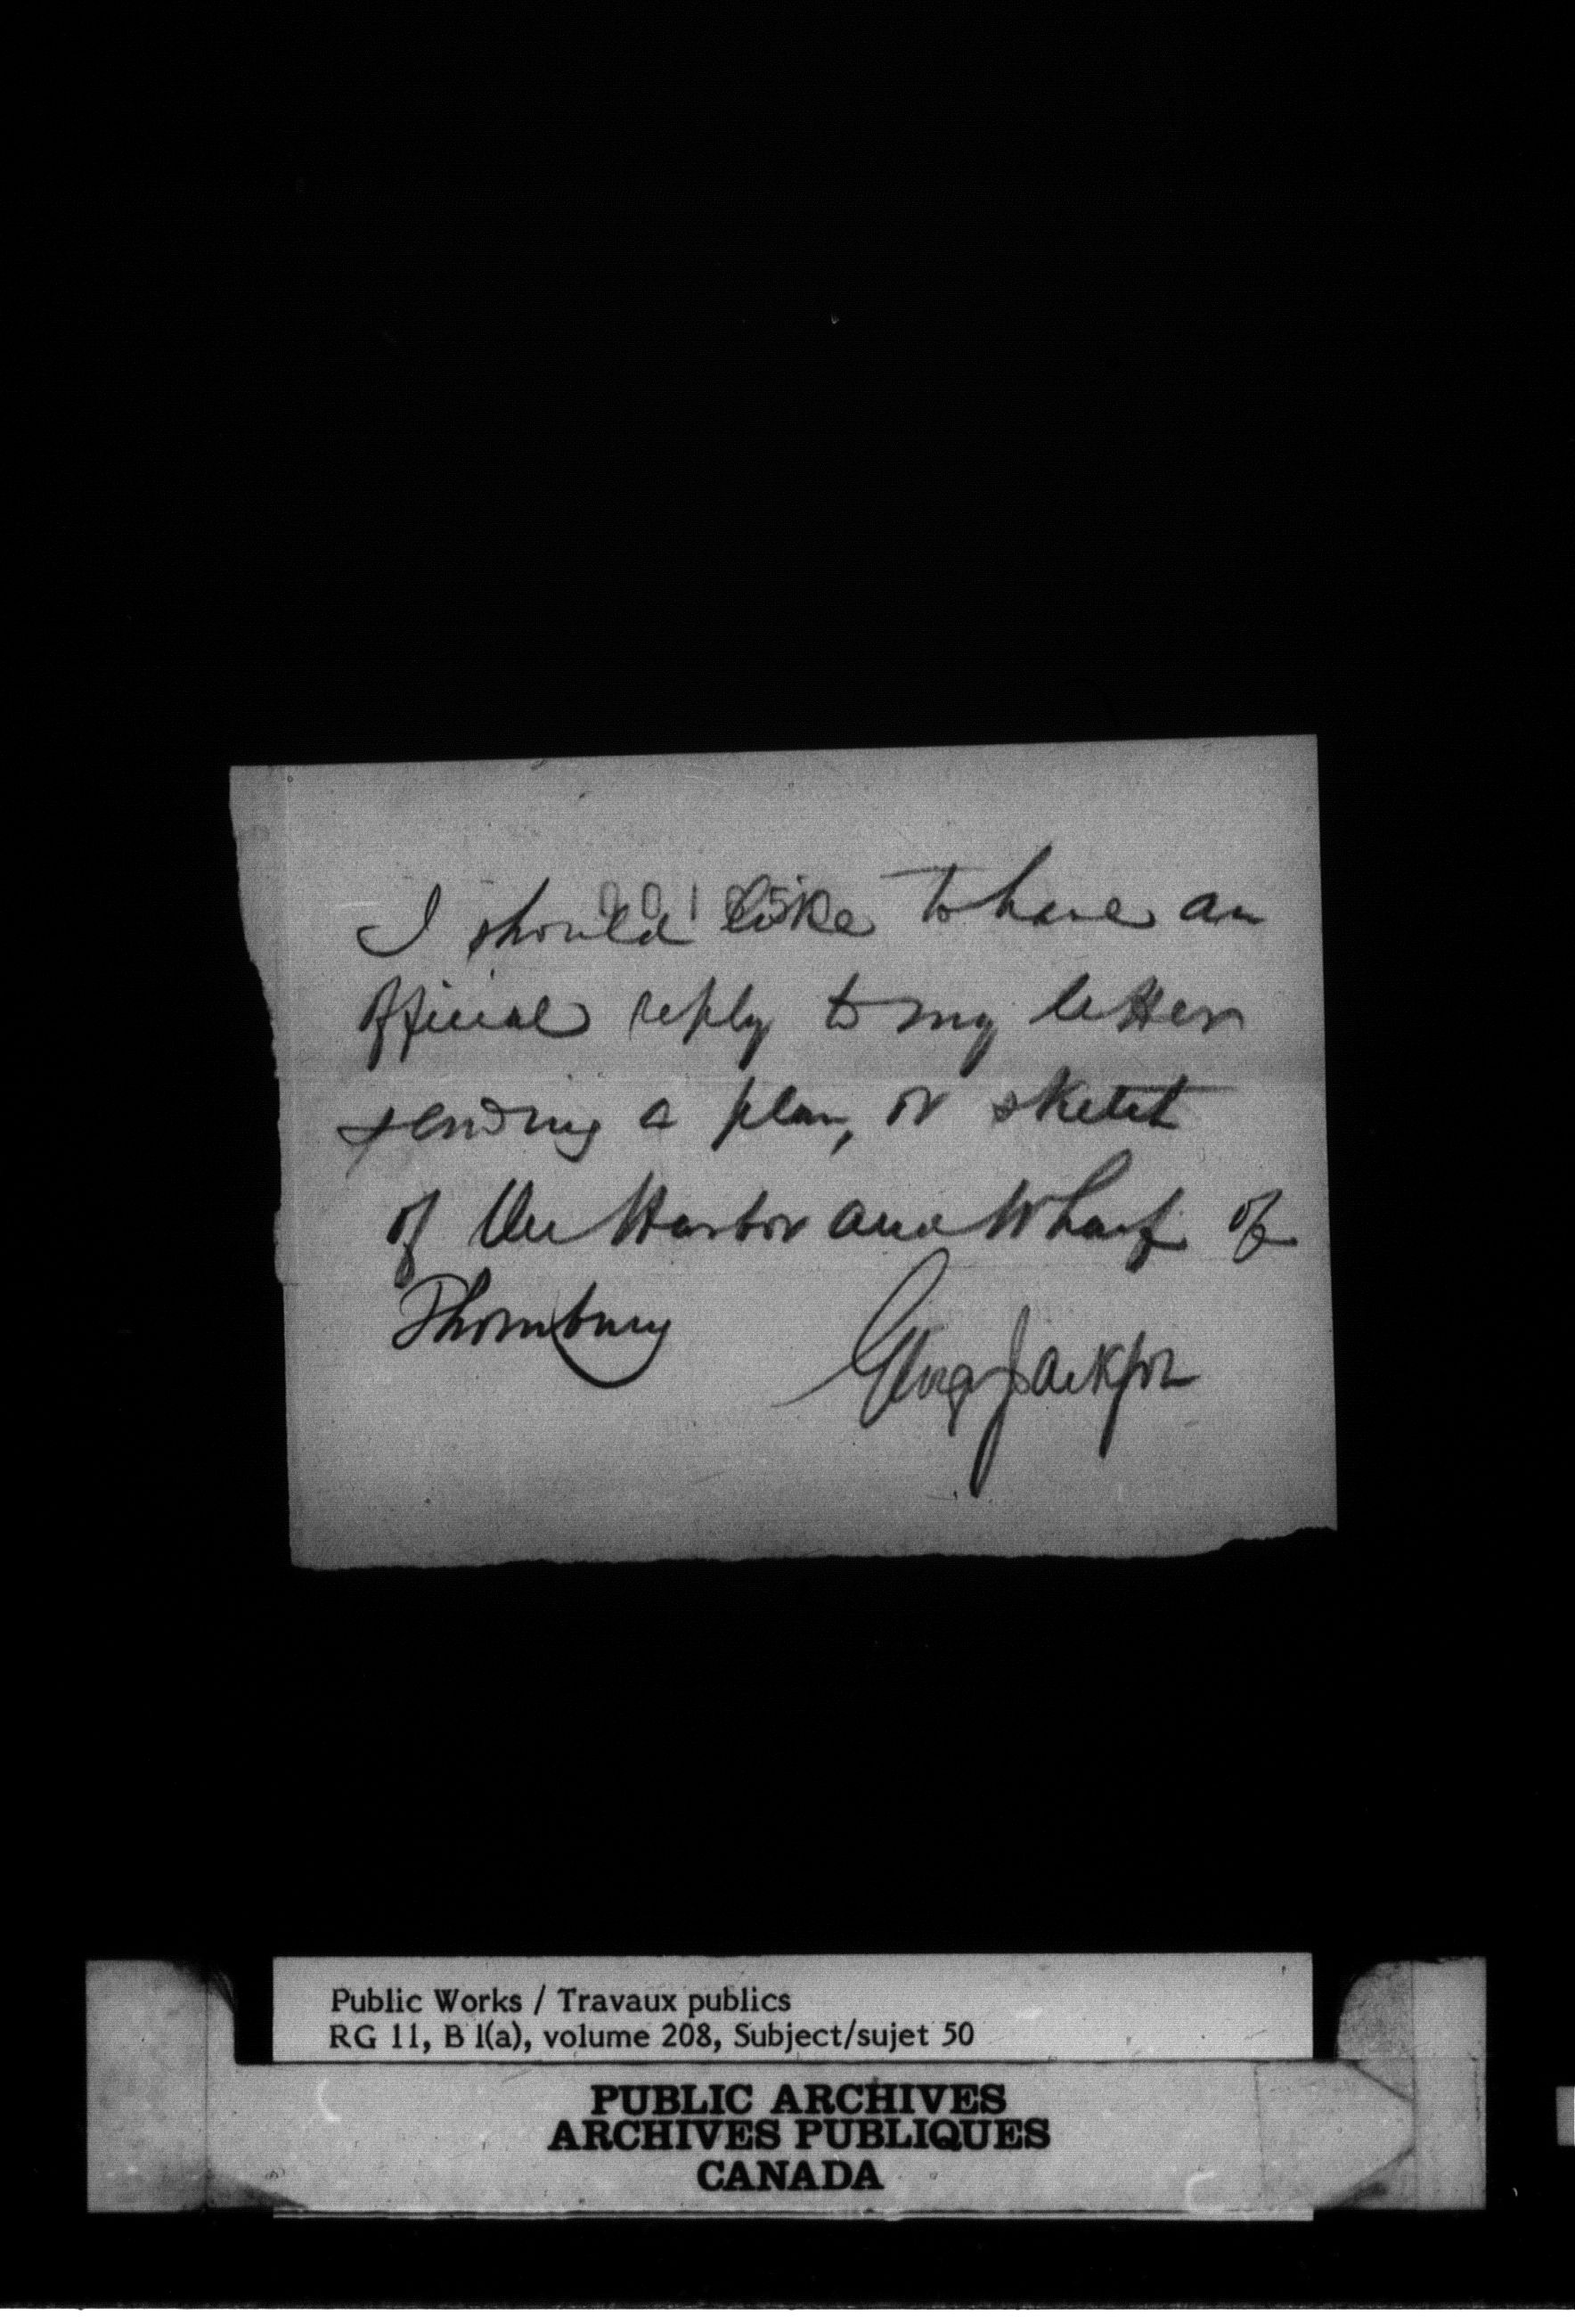 I should like to have an
official reply to my letter
sending a plan, or sketch
of the Harbor and Wharf of
Thornbury
Geo Jackson
Public Works / Travaux publics
RG 11, B 1(a), volume 208, Subject/sujet 50
PUBLIC ARCHIVES
ARCHIVES PUBLIQUES
CANADA